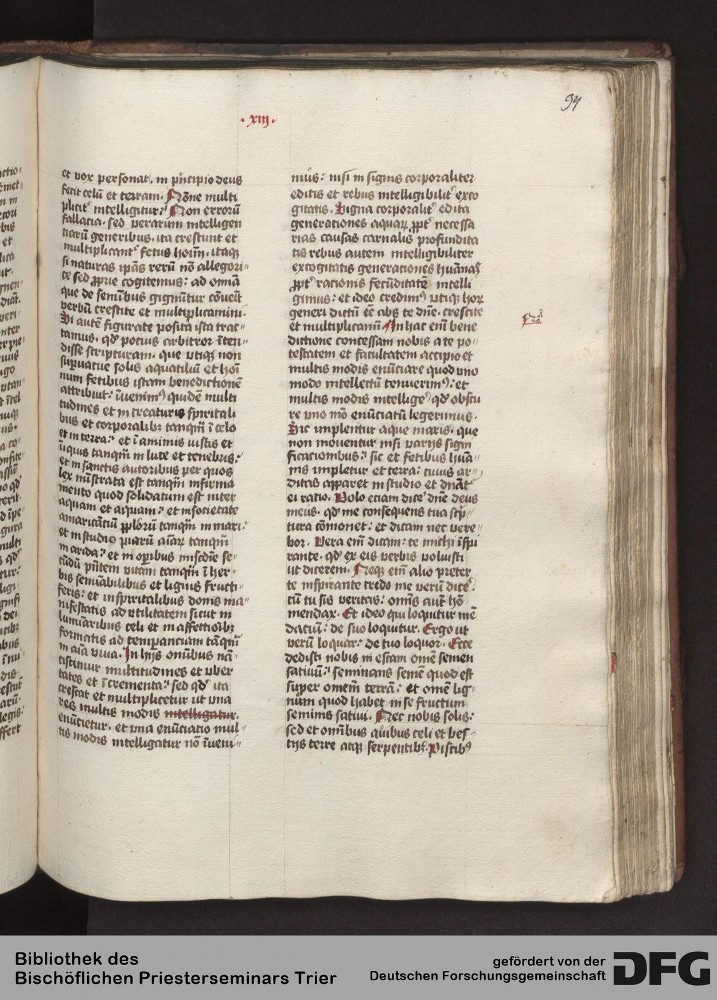 94
·xiij·
et vox personat. in pͥncipio deus
fecit celū et terram. Nōne multi
pliciter intelligitur? Non errorū
fallacia. sed verarum intelligen
tiarū generibus. ita crescunt et
multiplicantᷣ fetus hoīm. itaqꝫ
si naturas ip̄as rerū nō allegori
ce sed ꝓprie cogitemus: ad omīa
que de seminibus gignūtur cōuēit
verbū crescite et multiplicamini.
Si autē figurate posita ista trac
tamus. qd̓ potius arbitror īten
disse scripturam. que vtiqꝫ non
supuacue solus aquatiliū et hoī
num fetibus istam benedictionē
attribuit: īuenimꝰ quidē multi
tudines et in creaturis spiritali
bus et corporalibꝫ tanqm̄ ī celo
et in terra: et ī animis iustis et
iniquis tanqm̄ in luce et tenebris:
et in sanctis autoribus per quos
lex mīstrata est tanqm̄ infirma
mento quod solidatum est inter
aquam et aquam: et in societate
amaricātiū pplōrū tanqm̄ in mari:
et in studio piarū aīarꝫ tanqm̄
in arida: et in oꝑibus misc̄die se
cūdū pn̄tem vitam tanqm̄ ī her
bis seminabilibus et lignis fructi
feris: et in spiritalibus donis ma
nifestatis ad vtilitatem sicut in
luminaribus celi et in affectionibꝫ
formatis ad temperanciam tāqm̄
in aīa viua. In hijs omībus nā
ciscimur multitudines et vber
tates et īcrementa: sed qd̓ ita
crescat et multiplicetur ut vna
res multis modis intelligatur.
enūcietur. et vna enūciatio mul
tis modis intelligatur nō īueni
mus: nisi in signis corporaliter
editis et rebus intelligibilitᷣ exco
gitatis. Signa corporalitᷣ edita
generationes aquarꝫ ꝓptᷣ necessa
rias causas carnalis profundita
tis rebus autem intelligibiliter
excogitatis generationes hūanas
ꝓptᷣ rationis fecūditatē intelli
gimus: et ideo credimꝰ vtriqꝫ horꝫ
generi dictū eē abs te dn̄e. crescite
et multiplicamī In hac em̄ bene
dictione concessam nobis a te po
testatem et facultatem accipio et
multis modis enūciare quod vno
modo intellectū tenuerimꝰ: et
multis modis intelligeᷣ qd̓ obscu
re vno mō enūciatū legerimus.
Sic implentur aque maris. que
non mouentur nisi varijs signi
ficationibus: sic et fetibus hūa
nis impletur et terra: cuius ar
ditas apparet in studio et dn̄atᷣ
ei ratio. Volo eciam diceᷣ dn̄e deus
meus. qd̓ me consequens tua scͥp
tura cōmonet: et dicam nec vere
bor. Vera em̄ dicam: te michi īspi
rante. qd̓ ex eis verbis voluisti
ut dicerem. Neqꝫ em̄ alio preter
te inspirante credo me verū diceᷣ.
cū tu sis veritas: omīs aut̄ hō
mendax. Et ideo qui loquitur mē
daciū: de suo loquitur. Ergo ut
verū loquar: de tuo loquor. Ecce
dedisti nobis in escam omē semen
satiuū: seminans semē quod est
super omem̄ terrā: et omē lig
num quod habet in se fructum
seminis satiui. Nec nobis solis:
sed et omībus auibus celi et bes
tijs terre atqꝫ serpentibꝫ. Piscibꝰ
Bibliothek des
Bischöflichen Priesterseminars Trier
gefördert von der
Deutschen Forschungsgemeinschaft
DFG